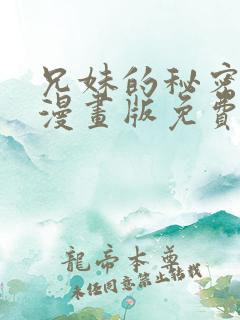 兄妹的秘密
漫畫版免費
龍帝本尊
未任同意禁止転找